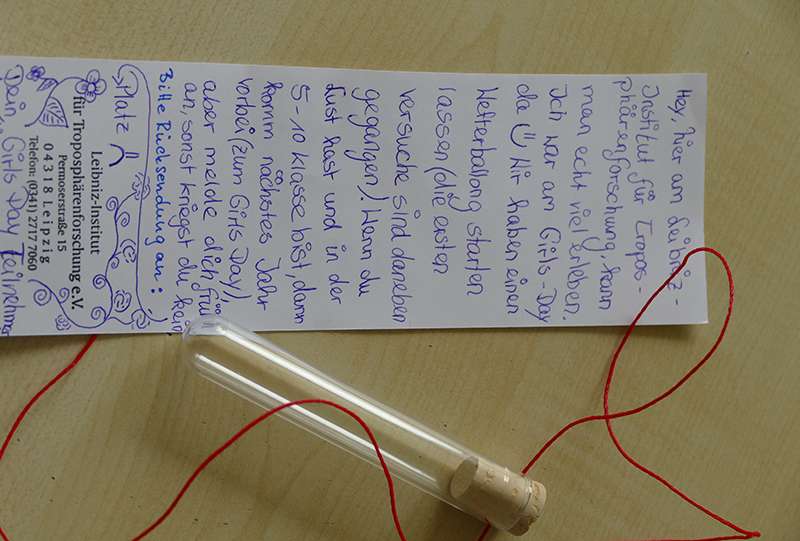 Hey, hier am Leibniz-
Institut für Tropos-
phärenforschung, kann
man echt viel erleben.
Ich war am Girls-Day
da ☺ Wir haben einen
Wetterballong starten
lassen (die ersten
versuche sind daneben
gegangen). Wenn du
Lust hast und in der
5-10 klasse bist, dann
komm nächstes Jahr
vorbei (zum Girls Day),
aber melde dich früh
an, sonst kriegst du kein
Bitte Rücksendung an:
Platz
Leibniz-Institut
für Troposphärenforschung e.V.
Permoserstraße 15
04318 Leipzig
Telefon: (0341) 2717 7060
Dein Girls Day Teilnehmer